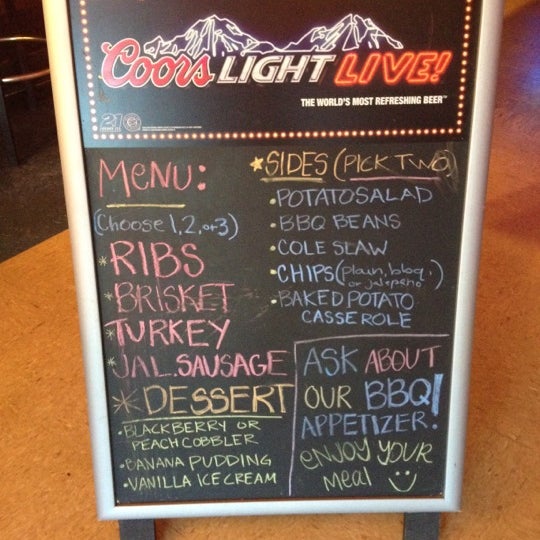 Coors LIGHT LIVE!
THE WORLD'S MOST REFRESHING BEER™
21
MENU:
(Choose 1, 2, or 3)
*RIBS
*BRISKET
*TURKEY
*JAL. SAUSAGE
*DESSERT
•BLACKBERRY OR
PEACH COBBLER
•BANANA PUDDING
•VANILLA ICE CREAM
*SIDES (PICK TWO)
•POTATO SALAD
•BBQ BEANS
•COLE SLAW
•CHIPS (plain, bbq,
or jalapeno)
•BAKED POTATO
CASSEROLE
ASK ABOUT
OUR BBQ
APPETIZER!
ENJOY YOUR
MEAL